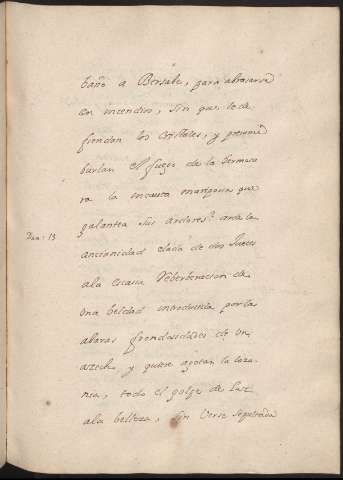 baño a Bersabe, para abrasarse
en incendios, sin que le de
fiendan los cristales, y presume
burlar el fuego de la hermosu
ra la incauta mariposa que
galantea sus ardores? arde la
Dan. 13
ancianidad elada de dos Jueces
a la escasa reberberacion de
una beldad introducida por las
abaras frondosidades de un
y quiere agotar la loza
nia, todo el golpe de luz
a la belleza, sin verse sepultada